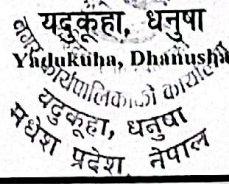 यदुकूहा, धनुषा
Yadukuha, Dhanusha
नगर कार्यपालिकाको कार्यालय
यदुकूहा, धनुषा
मधेश प्रदेश, नेपाल